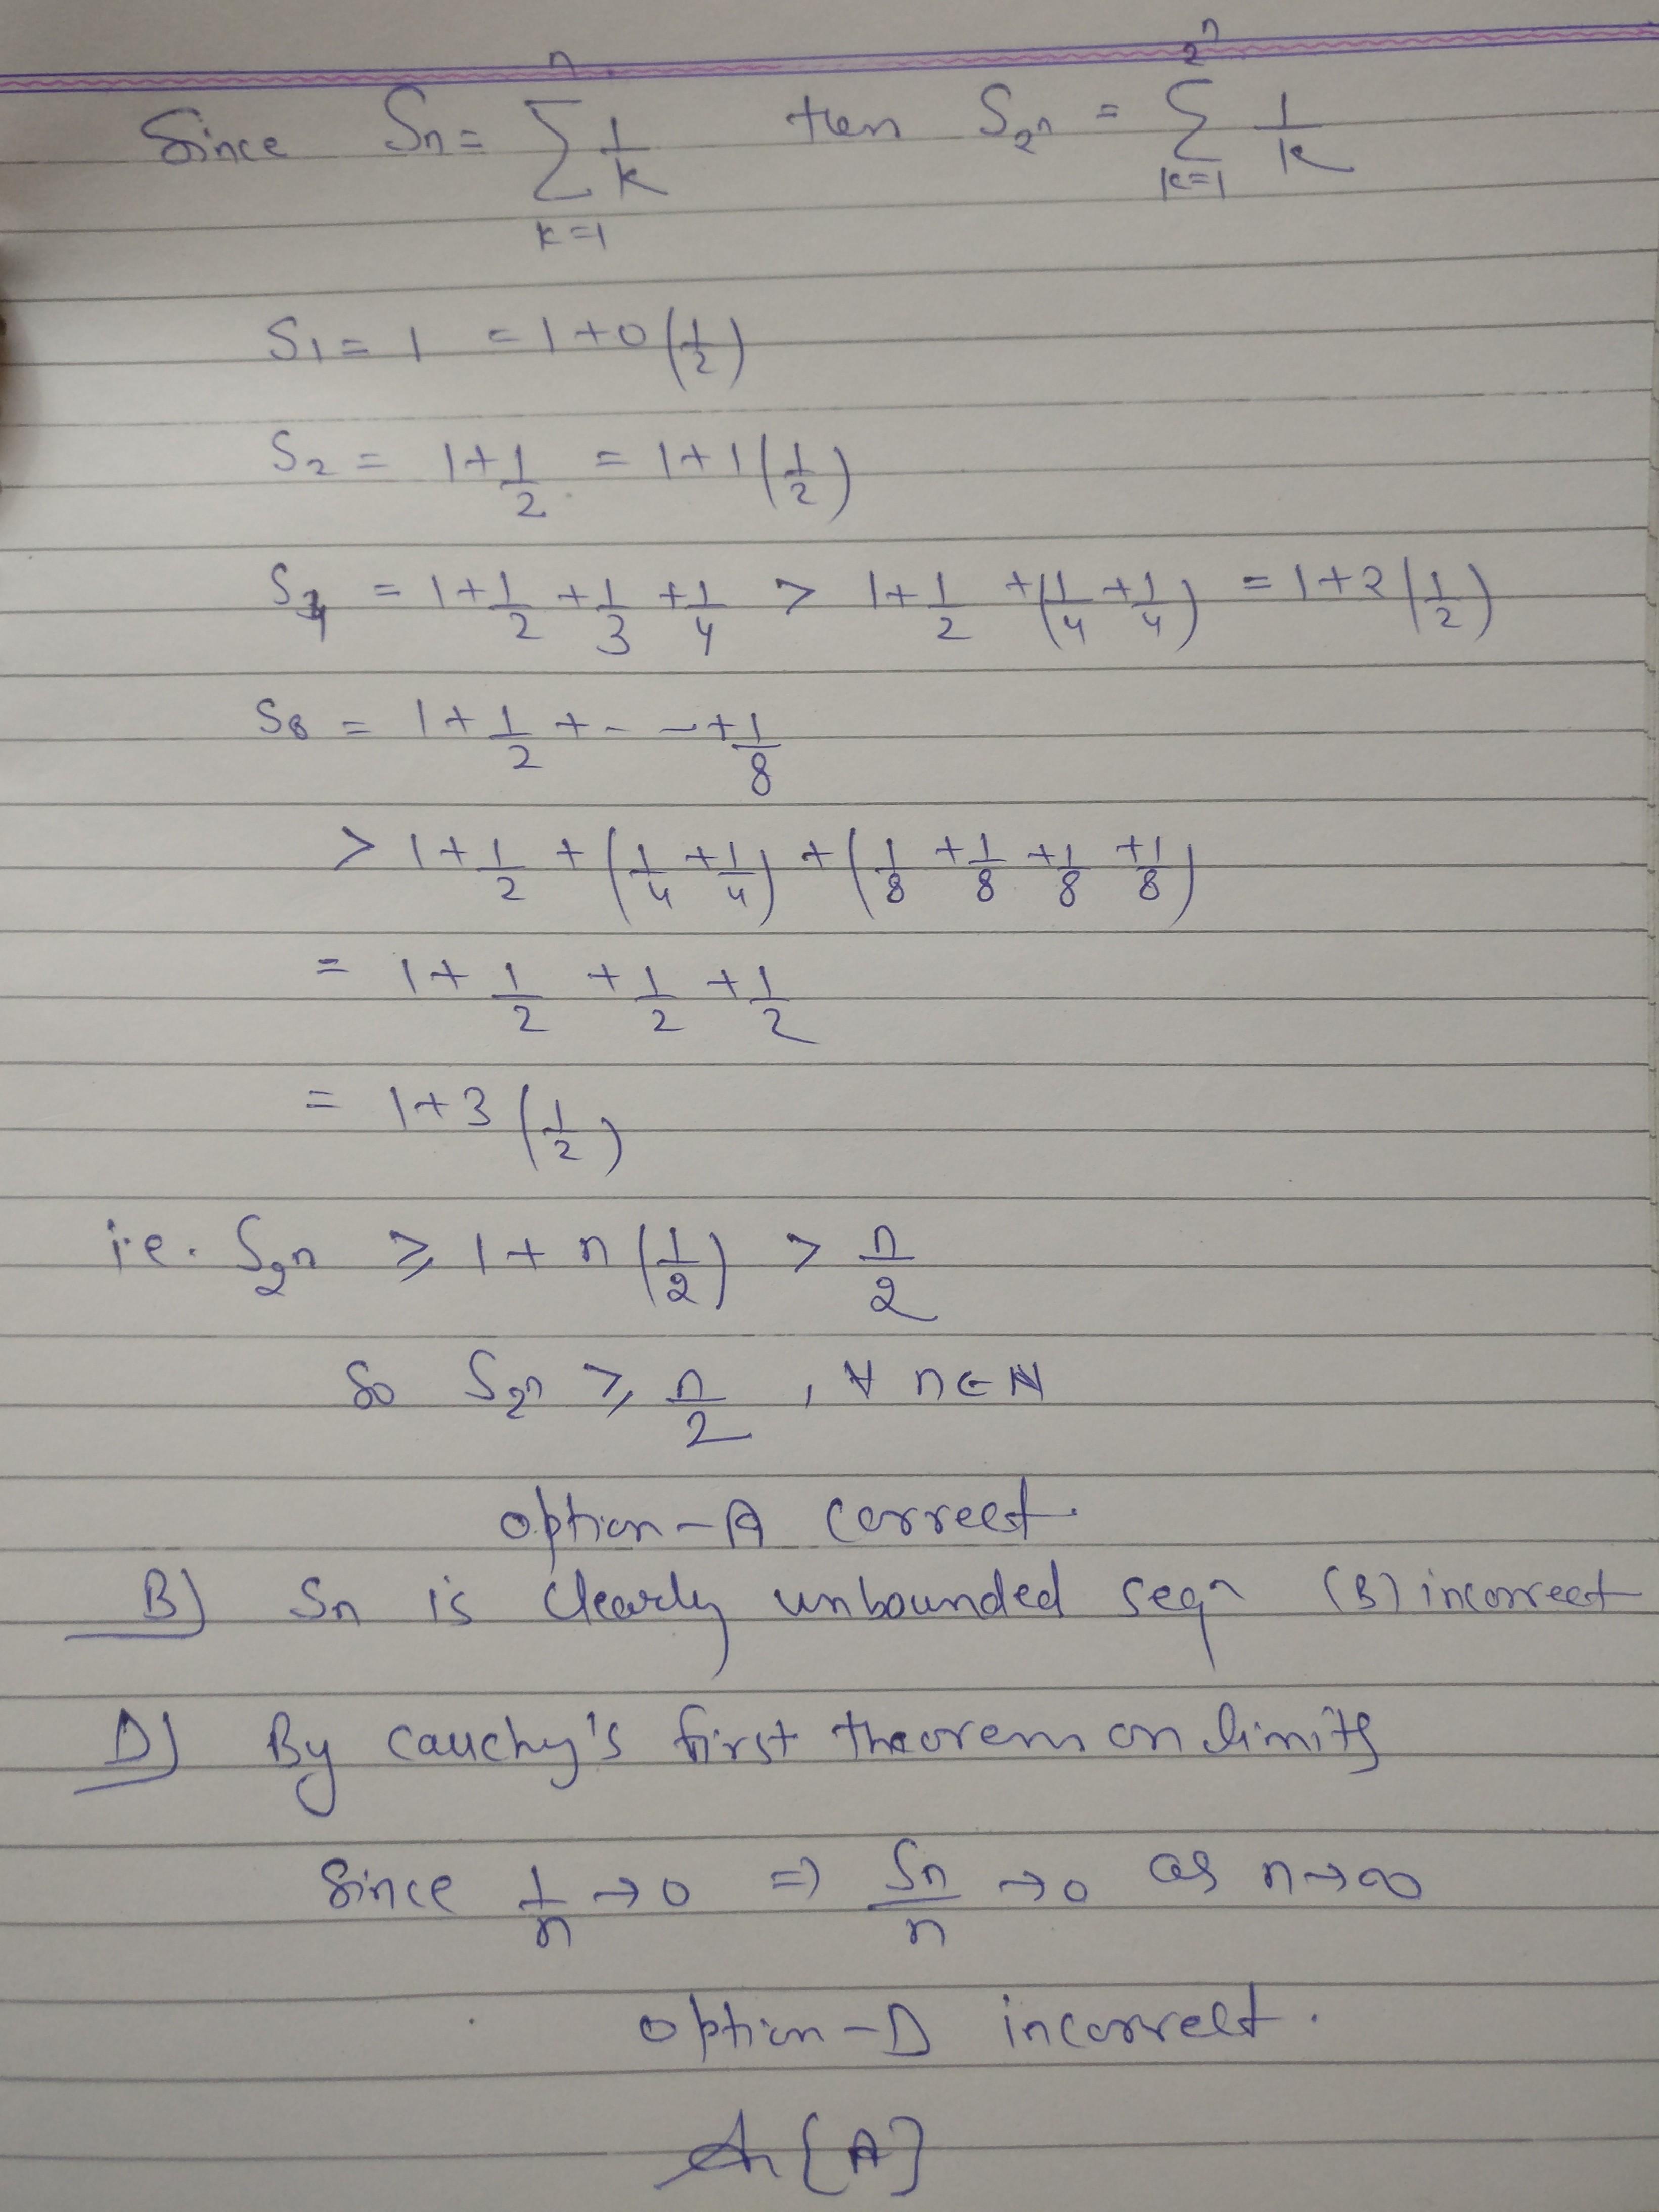 Since Sn = n∑k=1 1/k then S2^n = 2^n∑k=1 1/k
S1 = 1 = 1+0(1/2)
S2 = 1+1/2 = 1+1(1/2)
S4 = 1+1/2+1/3+1/4 > 1+1/2+(1/4+1/4) = 1+2(1/2)
S8 = 1+1/2+- -+1/8
> 1+1/2+(1/4+1/4)+(1/8+1/8+1/8+1/8)
= 1+1/2+1/2+1/2
= 1+3(1/2)
i.e. S2^n ≥ 1+n(1/2) > n/2
So S2^n ≥ n/2, ∀ n∈N
option-A correct.
B) Sn is clearly unbounded seqn (B) incorrect
D) By cauchy's first theorem on limits
Since 1/n → 0 ⇒ Sn/n → 0 as n→∞
option-D incorrect.
An {A}